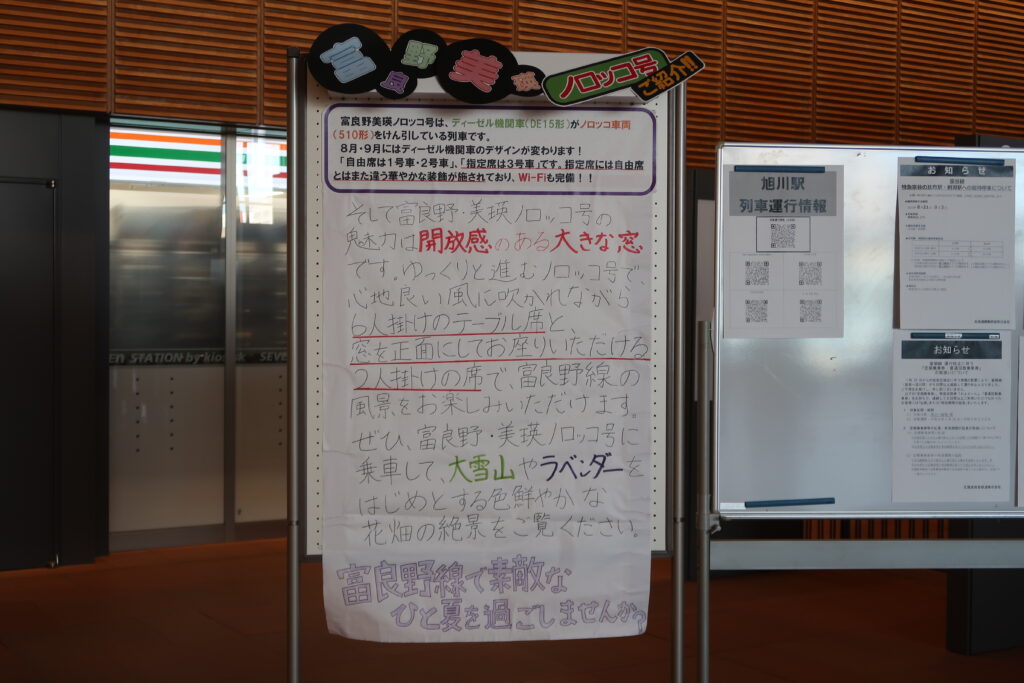 富良野美瑛
ノロッコ号
ご紹介!!
富良野美瑛ノロッコ号は、ディーゼル機関車(DE15形)がノロッコ車両
(510形)をけん引している列車です。
8月・9月にはディーゼル機関車のデザインが変わります!
「自由席は1号車・2号車」、「指定席は3号車」です。指定席には自由席
とはまた違う華やかな装飾が施されており、Wi-Fiも完備!!
そして富良野・美瑛ノロッコ号の
魅力は開放感のある大きな窓
です。ゆっくりと進むノロッコ号で、
心地良い風に吹かれながら
6人掛けのテーブル席と、
窓を正面にしてお座りいただける
2人掛けの席で、富良野線の
風景をお楽しみいただけます。
ぜひ、富良野・美瑛ノロッコ号に
乗車して、大雪山やラベンダーを
はじめとする色鮮やかな
花畑の絶景をご覧ください。
富良野線で素敵な
ひと夏を過ごしませんか?
旭川駅
列車運行情報
お知らせ
お知らせ
STATION by kiosk
SEVE